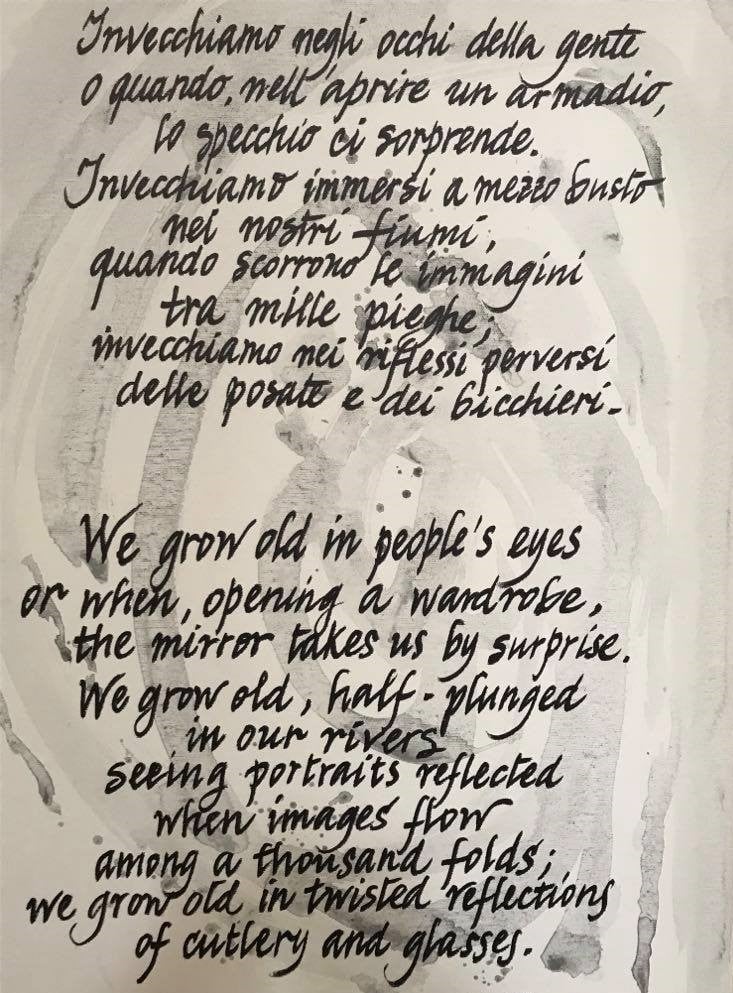 Invecchiamo negli occhi della gente
o quando, nell'aprire un armadio,
lo specchio ci sorprende.
Invecchiamo immersi a mezzo busto
nei nostri fiumi,
quando scorrono le immagini
tra mille pieghe,
invecchiamo nei riflessi perversi
delle posate e dei bicchieri.
We grow old in people's eyes
or when, opening a wardrobe,
the mirror takes us by surprise.
We grow old, half-plunged
in our rivers
seeing portraits reflected
when images flow
among a thousand folds;
we grow old in twisted reflections
of cutlery and glasses.